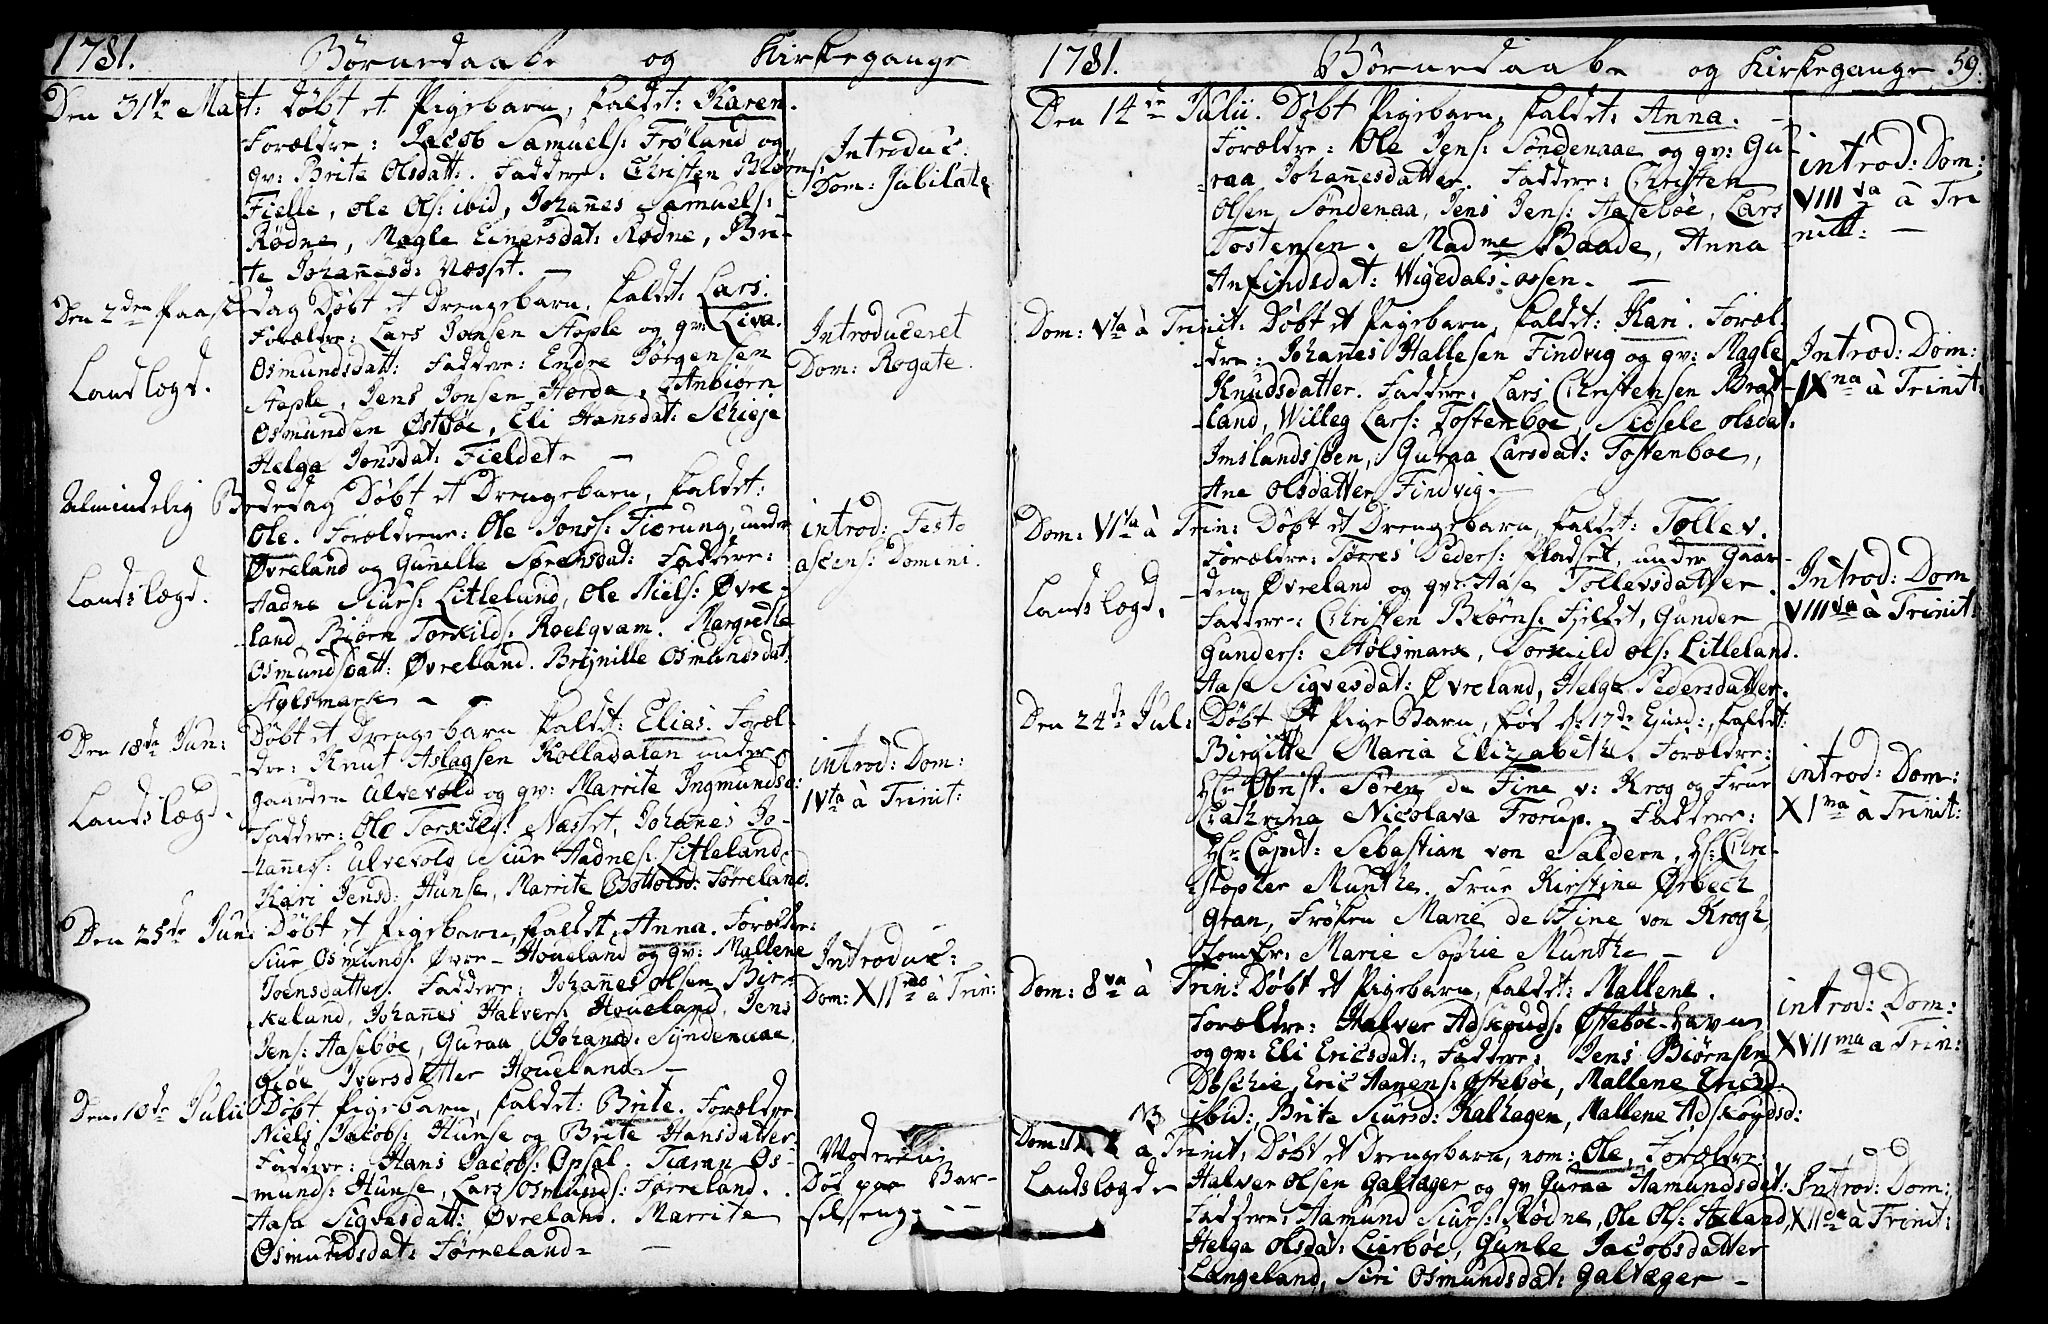 1781. Børnedaabe og Kirkegange
Den 31te Mart: døbt et Pigebarn, kaldet: Karen.
Forældre: Jacob Samuels: Frøland og
gv: Brite Olsdatt: Faddere: Christen Biørns:
Fielle, Ole Ols: ibid, Johañes Samuels:
Rødne, Magle Einersdat: Rødne, Bri-
te Johañesd: Næsset. —
Introduc:
Dom: Jubilate
Den 2den Paaskedag Døbt et Drengebarn, kaldet: Lars.
Forældre: Lars Jonsen Aaple og gv: Liva
Osmundsdatt: Faddere: Endre Jørgensen
Aaple, Jens Jonsen Horda, Anbiørn
Osmundsen Østbøe, Eli Hansdat:
Helga Jonsdat: Fieldet. —
Landslægd.
Introduceret
Dom: Rogate.
Almindelig Bededag Døbt et Drengebarn, kaldet:
Ole. Forældrene: Ole Jons: Tiærung, under
Øvreland og Gunille Sørensdat: Faddere:
Aadne Siurs: Litlelund, Ole Niels: Øvre-
land, Biørn Torkilds: Roelqvam. Margrethe
Osmundsdatt: Øvreland. Brynille Osmundsdat:
Aølsmark —
Landslægd.
introd: Festo
ascens: Domini.
Den 18de Jun: Døbt et Drengebarn kaldet: Elias. Foræl-
dre: Knut Aslagsen Kolladalen under
gaarden Ulvevold og gv: Marrite Ingmundsd:
Faddere: Ole Torkilds: Næsset, Johañes Jo-
hañes: Ulvevold, Siur Aadnes: Litleland,
Kari Jensd: Hunse, Marrite Bottolsd: Tørreland.
Landslægd.
introd: Dom:
IVta à Trinit:
Den 25de Juni Døbt et Pigebarn, kaldet, Anna. Forældre:
Siur Osmunds: Øvre-Houeland og gv: Mallene
Joensdatter. Faddere: Johañes Olsen Bir-
keland, Johañes Halvers: Houeland, Jens
Jens: Aasebøe, Guraa Johañd: Syndenaae,
Giøe Iversdatter Houeland. —
Introduc:
Dom: XIIma à Trin:
Den 10de Julii Døbt Pigebarn, kaldet: Brite. Forældre:
Niels Jacobs: Hunse og Brite Hansdatter
Faddere: Hans Jacobs: Opsal, Tiæran Os-
munds: Hunse, Lars Osmunds: Tørreland.
Aasa Sigvesdatt: Øvreland. Marrite
Osmundsdat: Tørreland. —
Moderen
Død paa Bar-
selseng. --
1781. Børnedaabe og Kirkegange 59.
Den 14de Julii. Døbt Pigebarn, kaldet: Anna. —
Forældre: Ole Jens: Søndenaae og gv: Gu-
raa Johañesdatter. Faddere: Christen
Olsen Søndenaa, Jens Jens: Aasebøe, Lars
Tostensen. Madme Baade, Anna
Anfindsdat: Wigedals-ossen. —
introd: Dom:
VIIIva à Tri
nitt: —
Dom: Vta à Trinit: Døbt et Pigebarn, kaldet: Kari. Foræl-
dre: Johañes Hallesen Findvig og gv: Magle
Knudsdatter. Faddere: Lars Christensen Brat-
land, Willeg Lars: Tostenboe, Sidsele Olsdat:
Imslandsiøen, Guraa Larsdat: Tostenboe,
Ane Olsdatter Findvig.
Introd: Dom:
IXna à Trinit:
Dom: VIta à Trin: Døbt et Drengebarn, kaldet: Tollev.
Forældre: Tørres Peders: Pladset, under Gaar-
den Øvreland og gv: Aase Tollevsdatter.
Faddere: Christen Beørns: Fieldet, Gunder
Gunders: Aølsmark, Torkild Ols: Litleland.
Aase Sigvesdat: Øvreland, Helge Pedersdatter.
Landslægd.
Introd: Dom
VIIIva à Trinit:
Den 24de Jul: Døbt et Pige Barn, fød d: 17de Ejusd:, kaldet:
Birgitte Maria Elizabeth. Forældre:
Hr: Obrist. Søren de Fine v: Krog og Frue
Cathrina Nicolava Frorup. Faddere:
Hr Capit: Sebastian von Saldern, Hr: Chri-
stopher Munthe. Frue Kirstine Ørbech
Gran, Frøken Marie de Fine von Krogh,
Jomfr: Marie Sophie Munthe —
introd: Dom:
XIma à Trinit:
Dom: 8va à Trin: Døbt et Pigebarn, kaldet: Mallene.
Forældre: Halver Adskouds: Østebøe-havn
og gv: Eli Ericsdat:, Faddere: Jens Biørnsen
Døschie, Eric Hanens: Østebøe, Mallene Ericsd:
ibid:, Brite Siursd: Kalhagen, Mallene Adskoydsd:
introd: Dom:
XVIIma à Trin:
NB
Dom: à Trinit, Døbt et Drengebarn, nom: Ole, Forældre:
Halver Olsen Galtager og gv Guraa Aamundsdat:
Faddere: Aamund Siurs: Rødne, Ole Ols: Aeland,
Helga Olsdat: Lierbøe, Gunle Jacobsdatter
Langeland, Siri Osmundsdat: Galtæger —
Landslægd
Introd: Dom:
XIIda à Trinit: